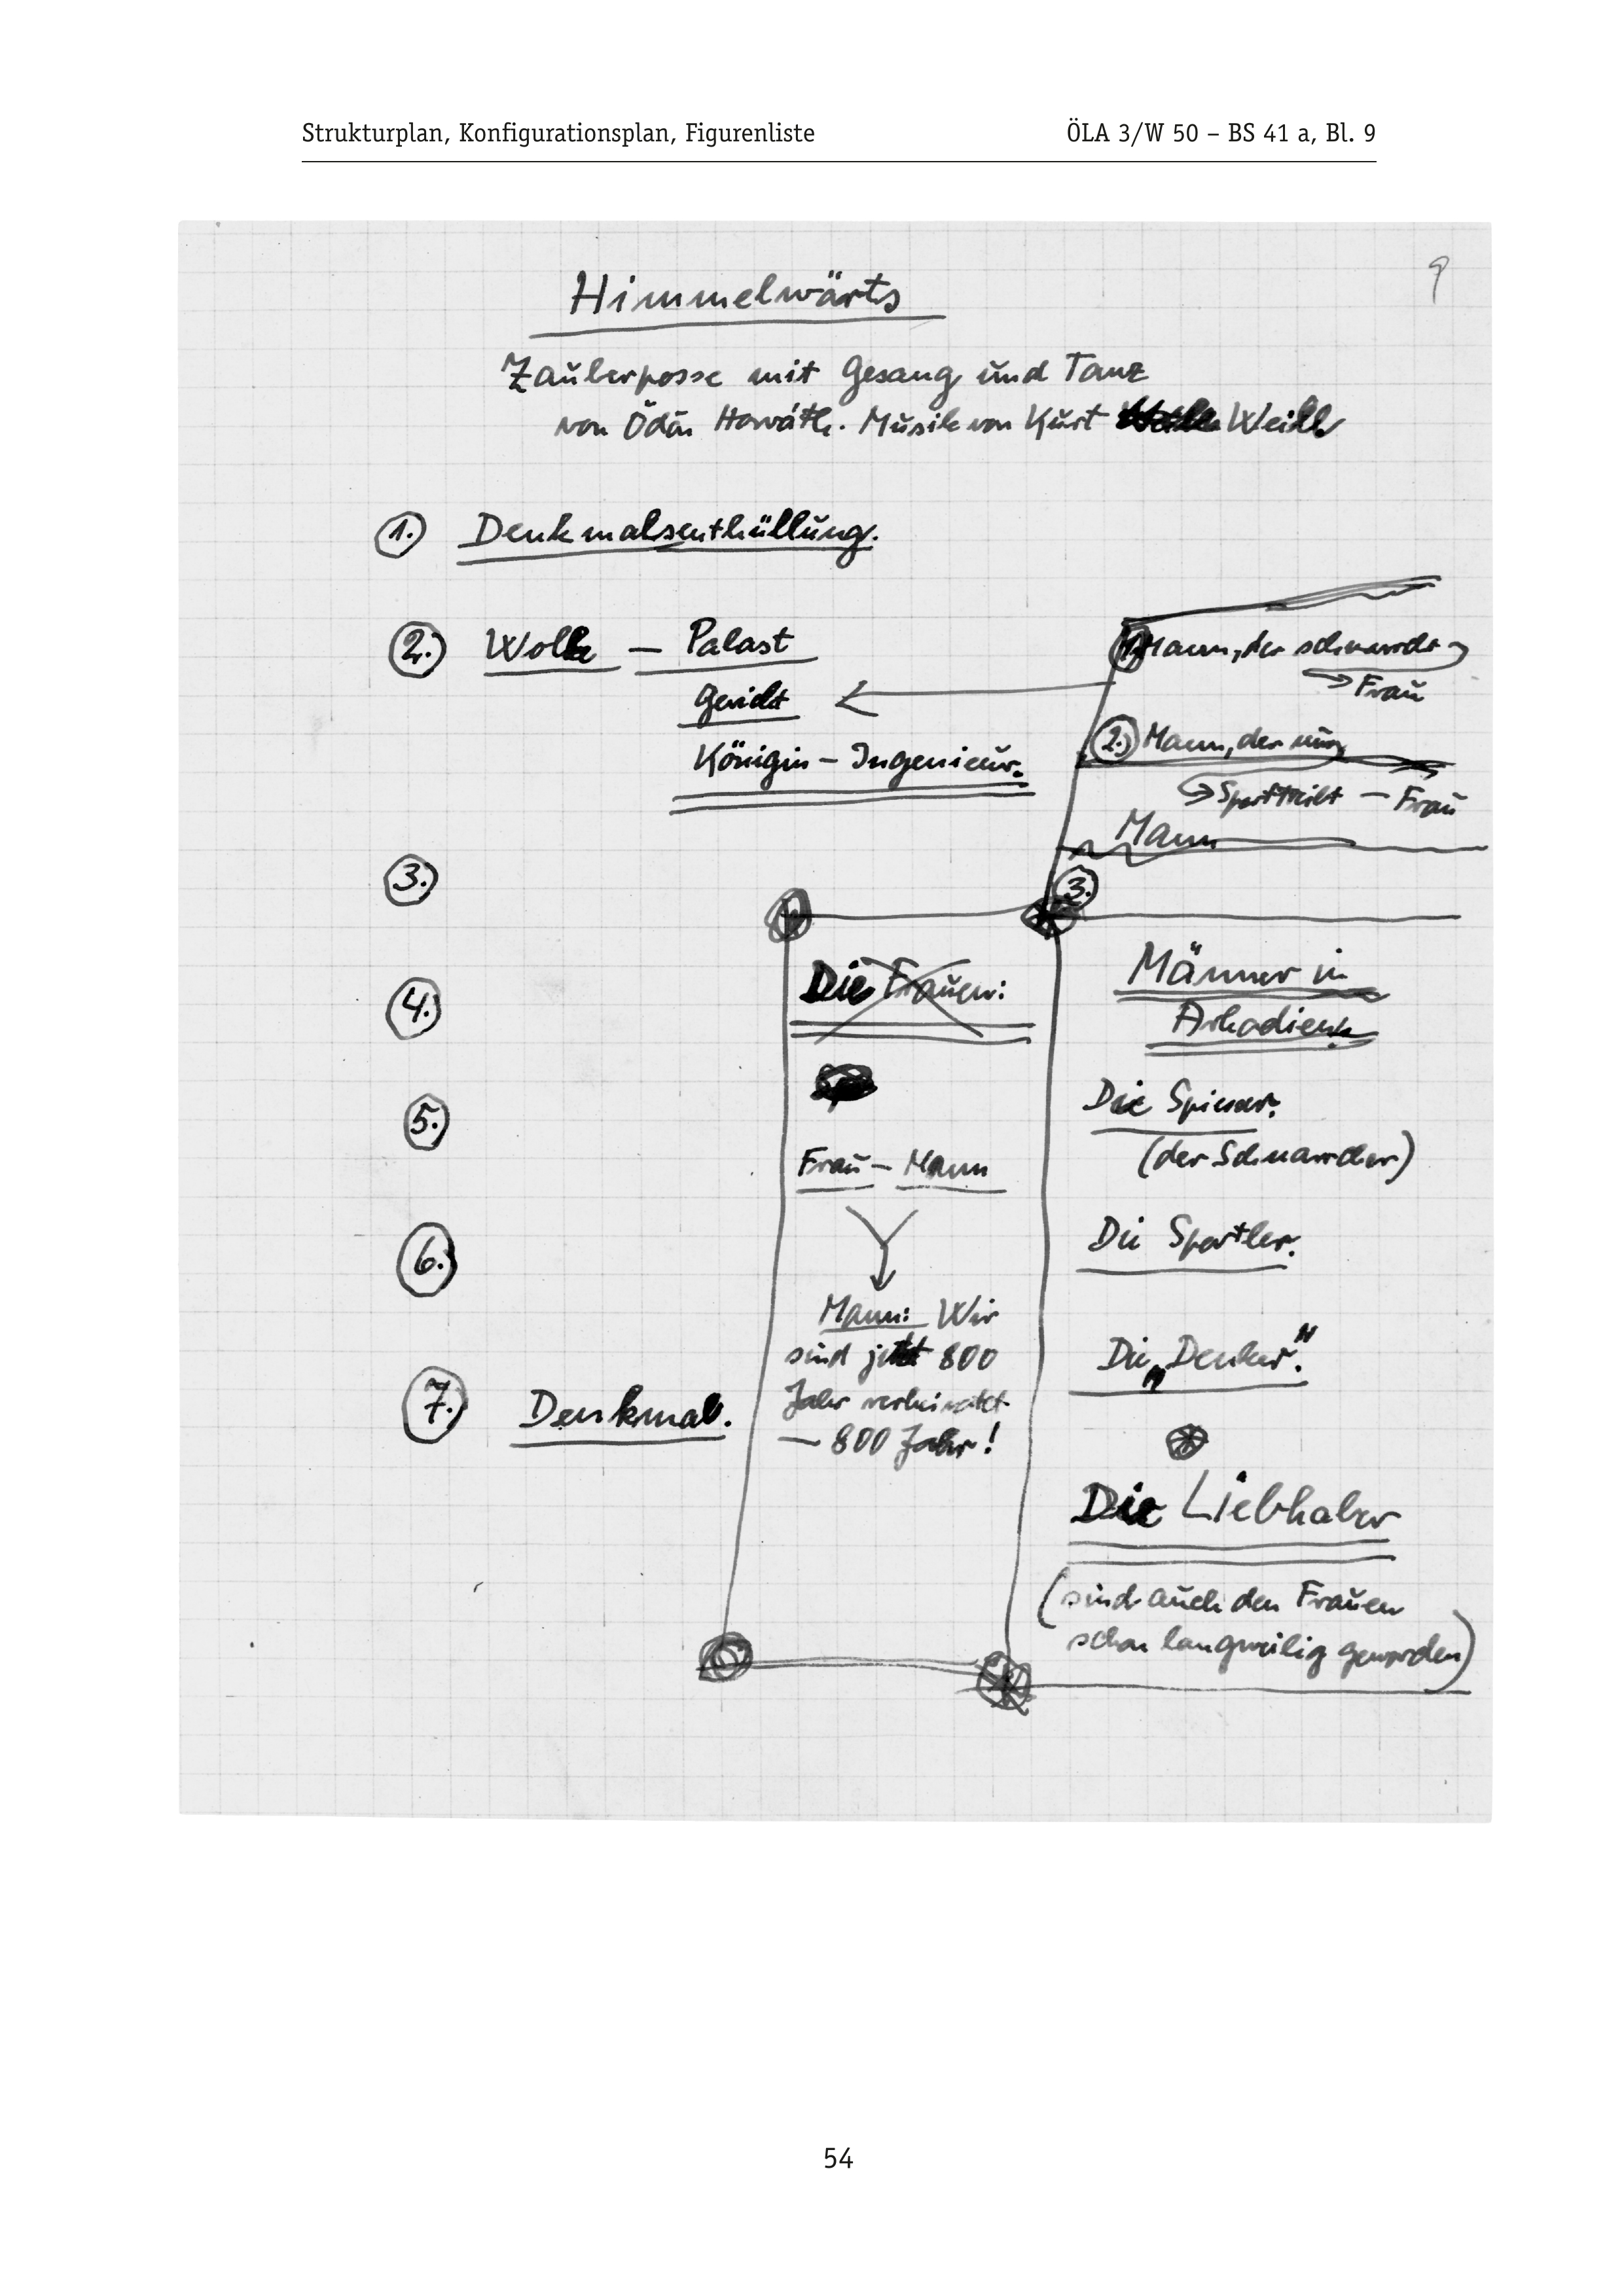 Strukturplan, Konfigurationsplan, Figurenliste ÖLA 3/W 50 – BS 41 a, Bl. 9
9
Himmelwärts
Zauberposse mit Gesang und Tanz
von Ödön Horváth. Musik von Kurt Weill
1. Denkmalsenthüllung.
2. Wolke – Palast
Gericht
Königin – Ingenieur.
3.
4.
5.
6.
7. Denkmal.
1. Mann, der schnarcht
Frau
2. Mann, der nur
Sport treibt – Frau
Mann
3.
Die Frauen:
Frau – Mann
Mann: Wir
sind jetzt 800
Jahr verheiratet
– 800 Jahr!
Männer in
Arkadien
Die Spiesser.
(der Schnarcher)
Die Sportler.
Die „Denker".
Die Liebhaber
(sind auch den Frauen
schon langweilig geworden)
54